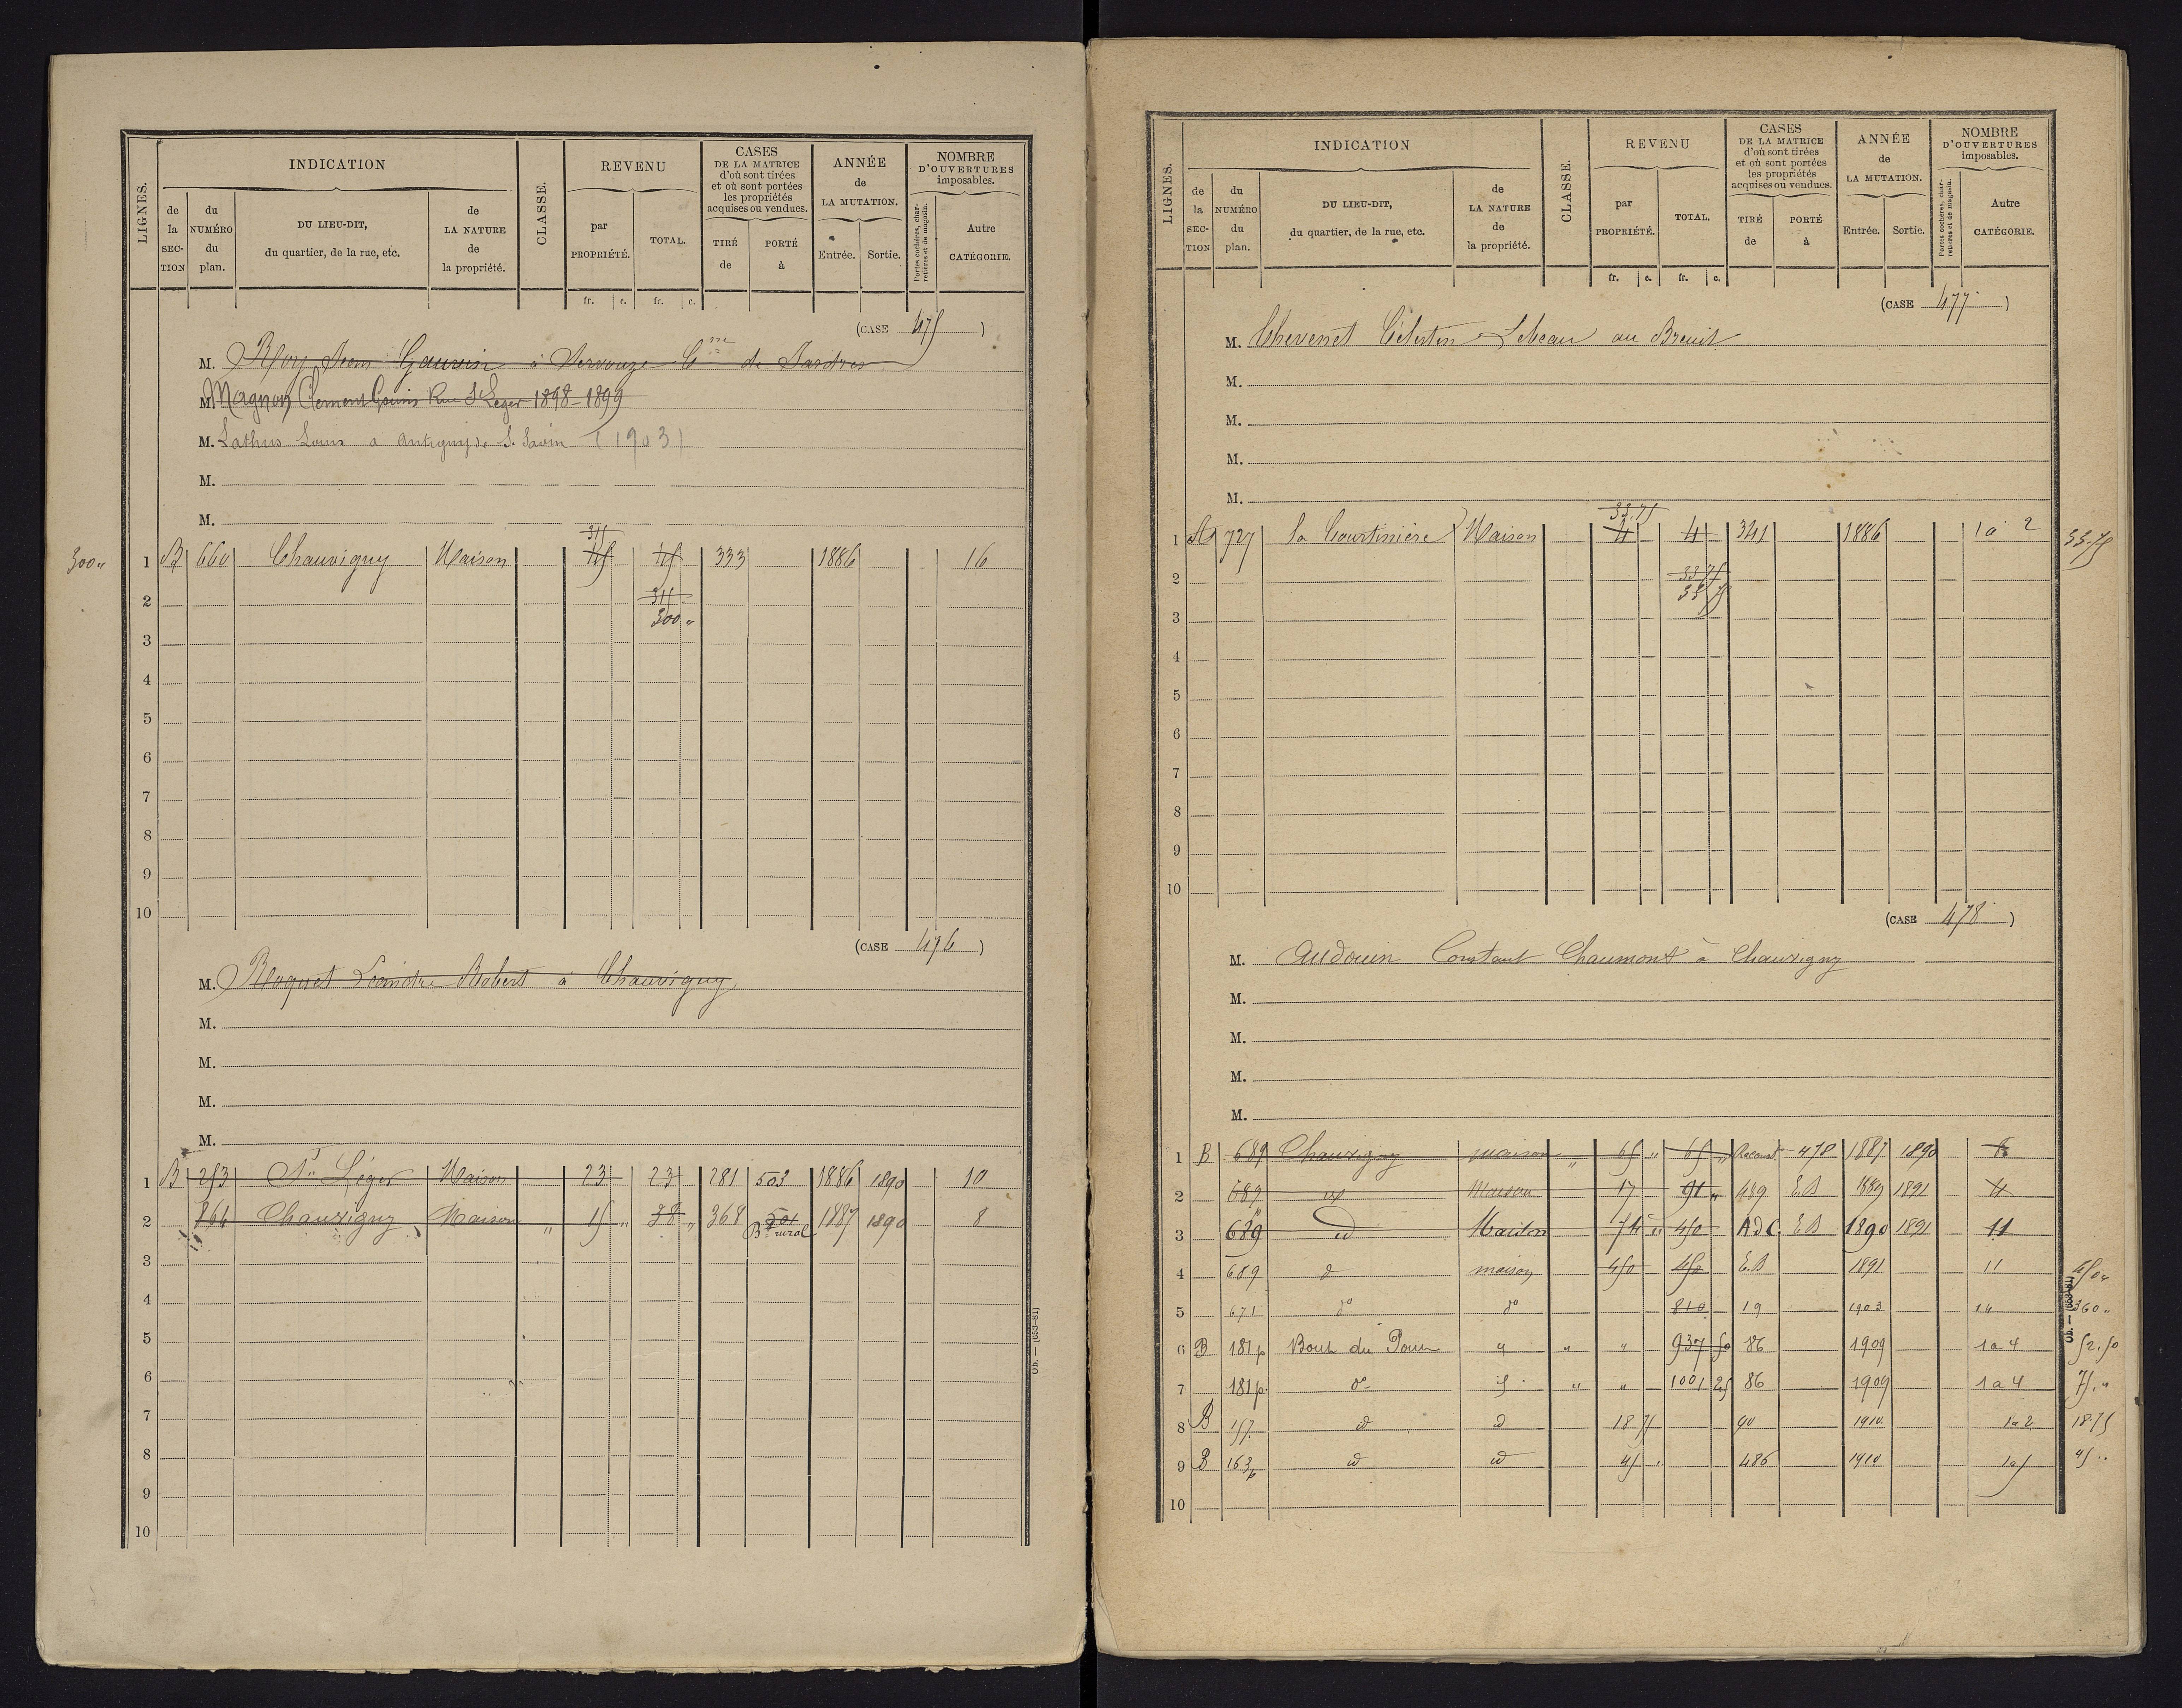 LIGNES. INDICATION CLASSE. REVENU CASES DE LA MATRICE d'où sont tirées et où sont portées les propriétés acquises ou vendues. ANNÉE de LA MUTATION. NOMBRE D'OUVERTURES imposables.
de la SECTION du NUMÉRO du plan. DU LIEU-DIT, du quartier, de la rue, etc. de LA NATURE de la propriété. par PROPRIÉTÉ. TOTAL. TIRÉ de PORTÉ à Entrée. Sortie. Portes cochères, charretières et de magasin. Autre CATÉGORIE.
fr. c. fr. c.
(CASE 475 )
M. Roy Jean Gauvin à Servouze Cne de
M. Magnon Clement Gouin Rue St Leger 1898-1899
M. Lathus Louis a Antigny de St Savin (1903)
M.
M.
315
300 " 1 B 660 Chauvigny Maison 45 45 333 1886 16
2 315
300 "
3
4
5
6
7
8
9
10
(CASE 476 )
M. Robert à Chauvigny
M.
M.
M.
M.
1 B 253 St Léger Maison 23 23 281 503 1886 1890 10
2 864 Chauvigny Maison " 15 " 38 " 368 501 1887 1890 8
B rural
3
4
5
6
7
8
9
10
Ob. — (653-81)
LIGNES. INDICATION CLASSE. REVENU CASES DE LA MATRICE d'où sont tirées et où sont portées les propriétés acquises ou vendues. ANNÉE de LA MUTATION. NOMBRE D'OUVERTURES imposables.
de la SECTION du NUMÉRO du plan. DU LIEU-DIT, du quartier, de la rue, etc. de LA NATURE de la propriété. par PROPRIÉTÉ. TOTAL. TIRÉ de PORTÉ à Entrée. Sortie. Portes cochères, charretières et de magasin. Autre CATÉGORIE.
fr. c. fr. c.
(CASE 477 )
M. Chevenet Célestin Lebeau au Breuil
M.
M.
M.
M.
33.75
1 A 727 la Courtinière Maison 4 4 341 1886 1 a 2 33.75
2 33 75
33 75
3
4
5
6
7
8
9
10
(CASE 478 )
M. Audouin Constant Chaumont à Chauvigny
M.
M.
M.
M.
1 B 689 Chauvigny maison " 65 " 65 " 478 1887 1890 6
2 689 id Maison 17 91 " 489 E.B 1889 1891 4
3 689 id Maison 74 " 450 A d C. E.B 1890 1891 11
4 689 d maison 450 450 E.B 1891 11 450 "
5 671 do do 810 19 1903 14 360 "
6 B 181p Bout du Pont " " " 937 50 86 1909 1 a 4 52.50
7 181p. do " " 1001 25 86 1909 1 a 4 75. "
8 B 157 d d 18 75 90 1910 1a2 18.75
9 B 163p id id 45 " 486 1910 1a5 45 "
10
Ob. — (653-81)